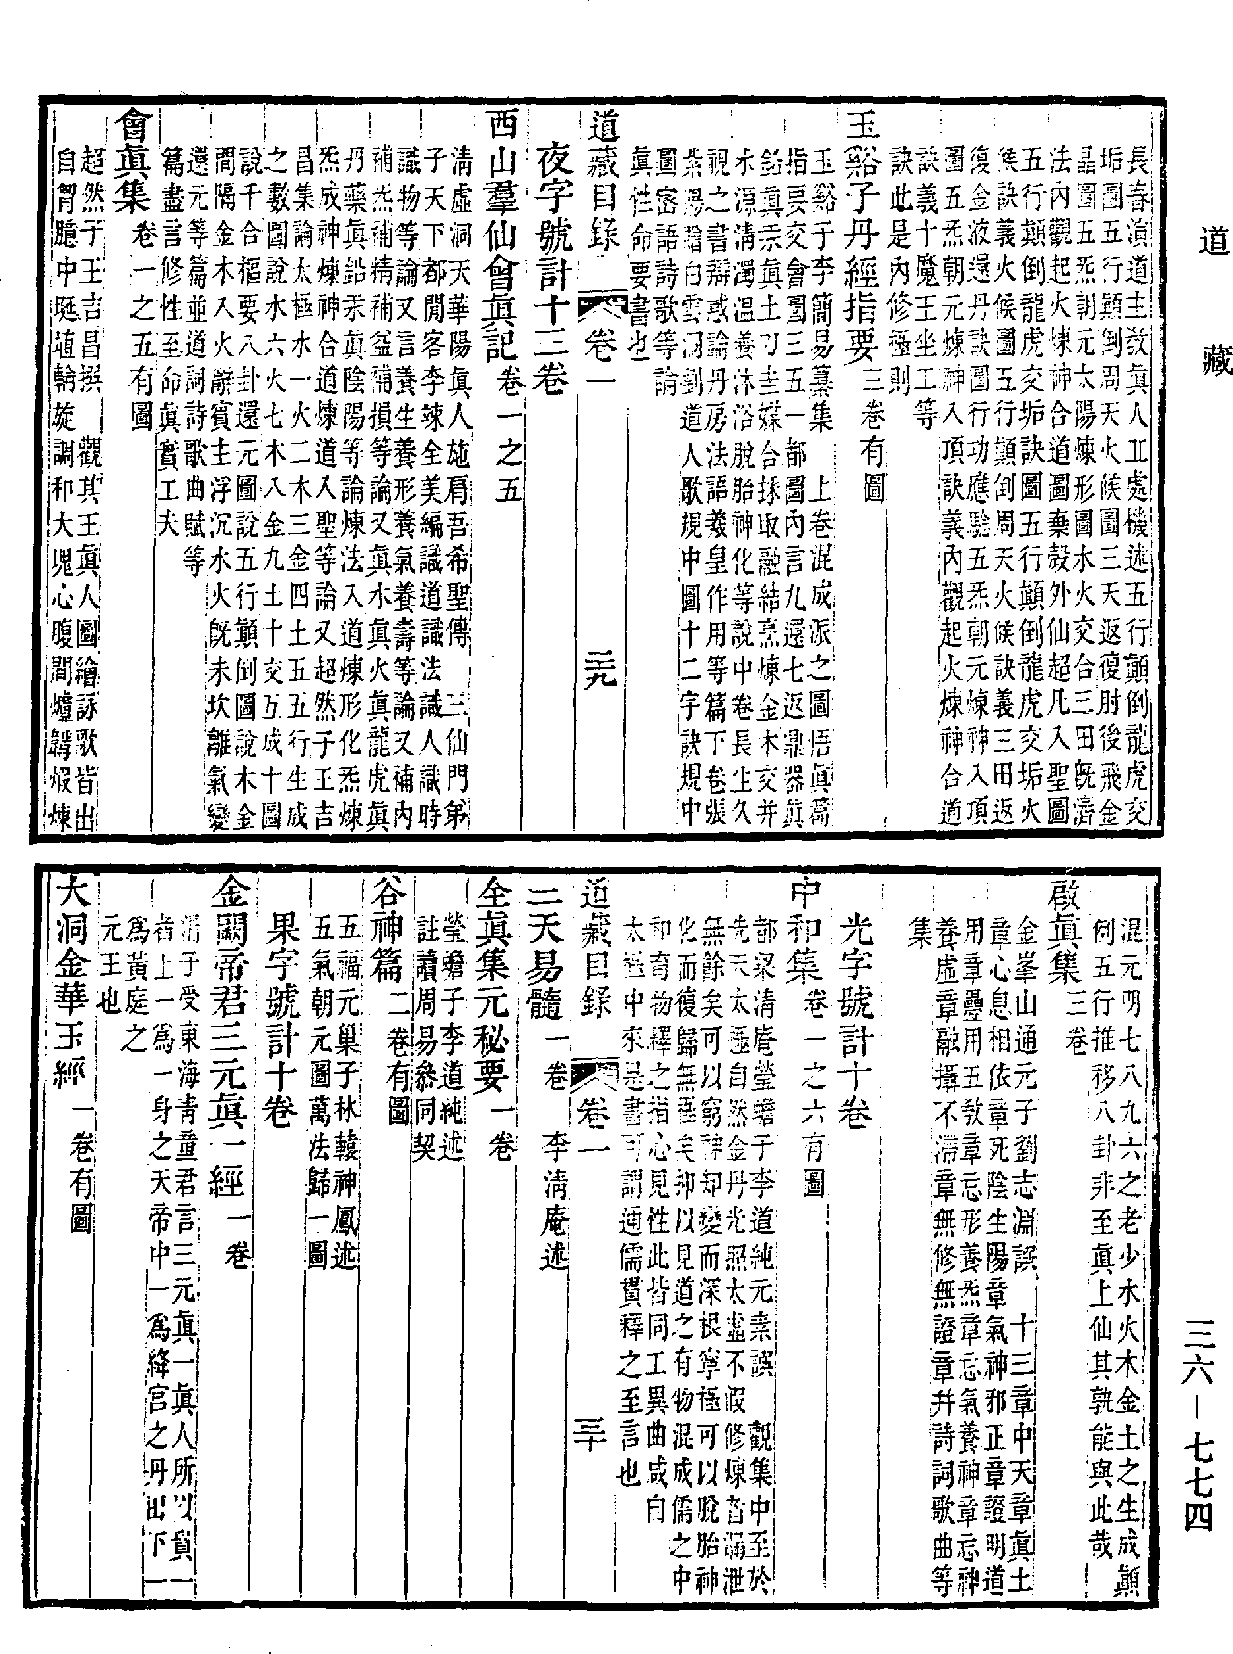 道藏
長春演道主教真人丘處機述五行顛倒龍虎交
垢圖五行顛倒周天火候圖三天返復肘後飛金
晶圖五炁朝元太陽煉形圖水火交合三田旣濟
法內觀起火煉神合道圖棄殼外仙超凡入聖圖
五行顛倒龍虎交垢訣圖五行顛倒龍虎交垢火
候訣義火候圖五行顛倒周天火候訣義三田返
復金液還丹訣圖行功應驗五炁朝元煉神入頂
圖五炁朝元煉神入頂訣義內觀起火煉神合道
訣義十魔王坐工等
訣此是內修極則
玉谿子丹經指要 三卷有圖
玉谿子李簡易纂集 上卷混成派之圖悟眞篇
指要交會圖三五一都圖內言九還七返鼎器眞
鉛眞汞眞土刀圭媒合採取融結烹煉金木交并
水源清濁溫養沐浴脫胎神化等說中卷長生久
視之書辯惑論丹房法語羲皇作用等篇下卷張
紫陽贈白雲洞劉道人歌規中圖十二字訣規中
圖密語詩歌等論
眞性命要書也
道藏目錄 卷一 二十九
夜字號計十三卷
西山羣仙會眞記 卷一之五
清虛洞天華陽眞人施肩吾希聖傳 三仙門弟
子天下都閒客李竦全美編識道識法識人識時
識物等論又言養生養形養氣養壽等論又補內
補炁補精補益補損等論又眞水眞火眞龍虎眞
丹藥眞鉛汞眞陰陽等論煉法入道煉形化炁煉
炁成神煉神合道煉道入聖等論又超然子王吉
昌集論太極水一火二木三金四土五五行生成
之數圖說水六火七木八金九土十交互成十圖
說千合樞要八卦還元圖說五行顛倒圖說木金
間隔金木入火辭賓主浮沉水火旣未坎離氣變
還元等篇並道詞詩歌曲賦等
篇盡言修性至命眞實工夫
會眞集 卷一之五有圖
超然子王吉昌撰 觀其王眞人圖繪詠歌皆出
自胷臆中埏埴斡旋調和大塊心腹間爐韝煅煉
混元明七八九六之老少水火木金土之生成顛
倒五行推移八卦非至眞上仙其孰能與此哉
啟眞集 三卷
金峯山通元子劉志淵譔 十三章中天章眞土
章心息相依章死陰生陽章氣神邪正章證明道
用章疊用五敎章忘形養炁章忘氣養神章忘神
養虛章融攝不滯章無修無證章幷詩詞歌曲等
集
光字號計十卷
中和集 卷一之六有圖
都梁清庵瑩蟾子李道純元素譔 觀集中至於
先天太極自然金丹光照太虛不假修煉者漏泄
無餘矣可以窮神知變而深根寧極可以脫胎神
化而復歸無極矣抑以見道之有物混成儒之中
和育物釋之指心見性此皆同工異曲咸自
太極中來是書可謂通儒貫釋之至言也
道藏目錄 卷一 三十
三天易髓 一卷 李清庵述
全眞集元秘要 一卷
瑩蟾子李道純述
註讀周易參同契
谷神篇 二卷有圖
五福元巢子林轅神鳳述
五氣朝元圖萬法歸一圖
果字號計十卷
金闕帝君三元眞一經 一卷
涓子受東海青童君言三元眞一眞人所以貴一
者上一爲一身之天帝中一爲絳宮之丹田下一
爲黃庭之
元王也
大洞金華玉經 一卷有圖
三六—七七四